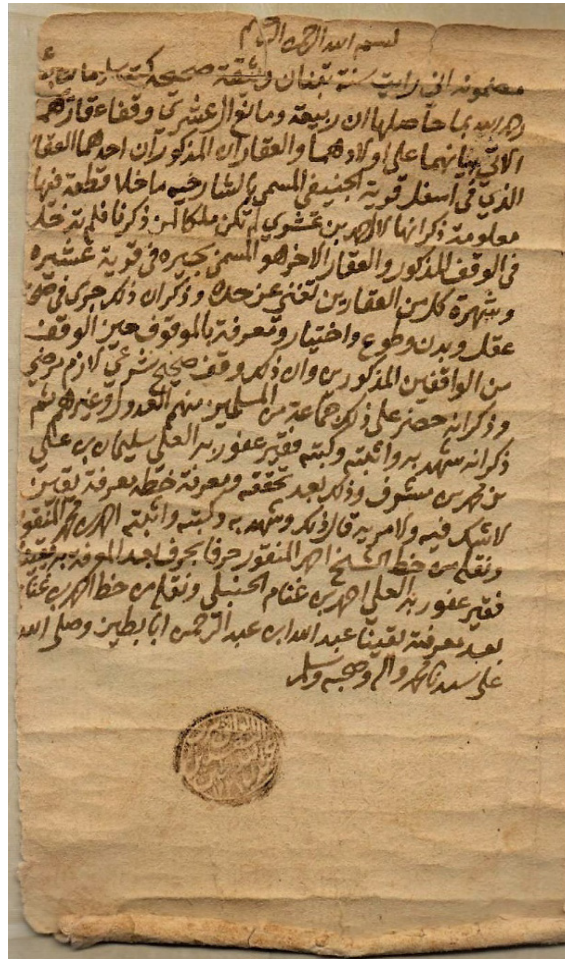 بسم الله الرحمن الرحيم
مضمونه اني رايت سنة وثيقة صحيحة كتب سليمان بن علي
رحمه الله بما حاصلها ان ربيعة ومانع ال عشري وقفاء عقارهما
الاتي بيانهما على اولادهما والعقاران المذكوران احدهما العقار
الذي في اسفل قرية الجنيفي المسمى بالشارخيه ماخلا قطعة فيها
معلومة ذكرا انها لاحمد بن عشري لم تكن ملكا لمن ذكرنا فلم تدخل
في الوقف المذكور والعقار الاخر هو المسمى بجبره في قرية عشيره
وشهرة كل من العقارين تغني عن حده وذكر ان ذلك جرى في صحة
عقل وبدن وطوع واختيار ومعرفة بالموقوف حين الوقف
من الواقفين المذكورين وان ذلك وقف صحيح شرعي لازم مرضي
وذكر انه حضر على ذلك جماعة من المسلمين منهم العدول وغيرهم ثم
ذكر انه شهد به واثبته وكتبه فقير عفو ربه العلي سليمان بن علي
بن محمد بن مشرف وذلك بعد تحققه ومعرفة خطه معرفة يقين
لا شك فيه ولا مريه قال ذلك وشهد به وكتبه واثبته احمد بن محمد المنقور
ونقله من خط الشيخ احمد المنقور حرفا بحرف بعد المعرفة به يقينا
فقير عفو ربه العلي احمد بن غنام الحنبلي ونقله من خط احمد بن غنام
بعد معرفته يقينا عبد الله ابن عبد الرحمن ابا بطين وصلى الله
على سيدنا محمد واله وصحبه وسلم